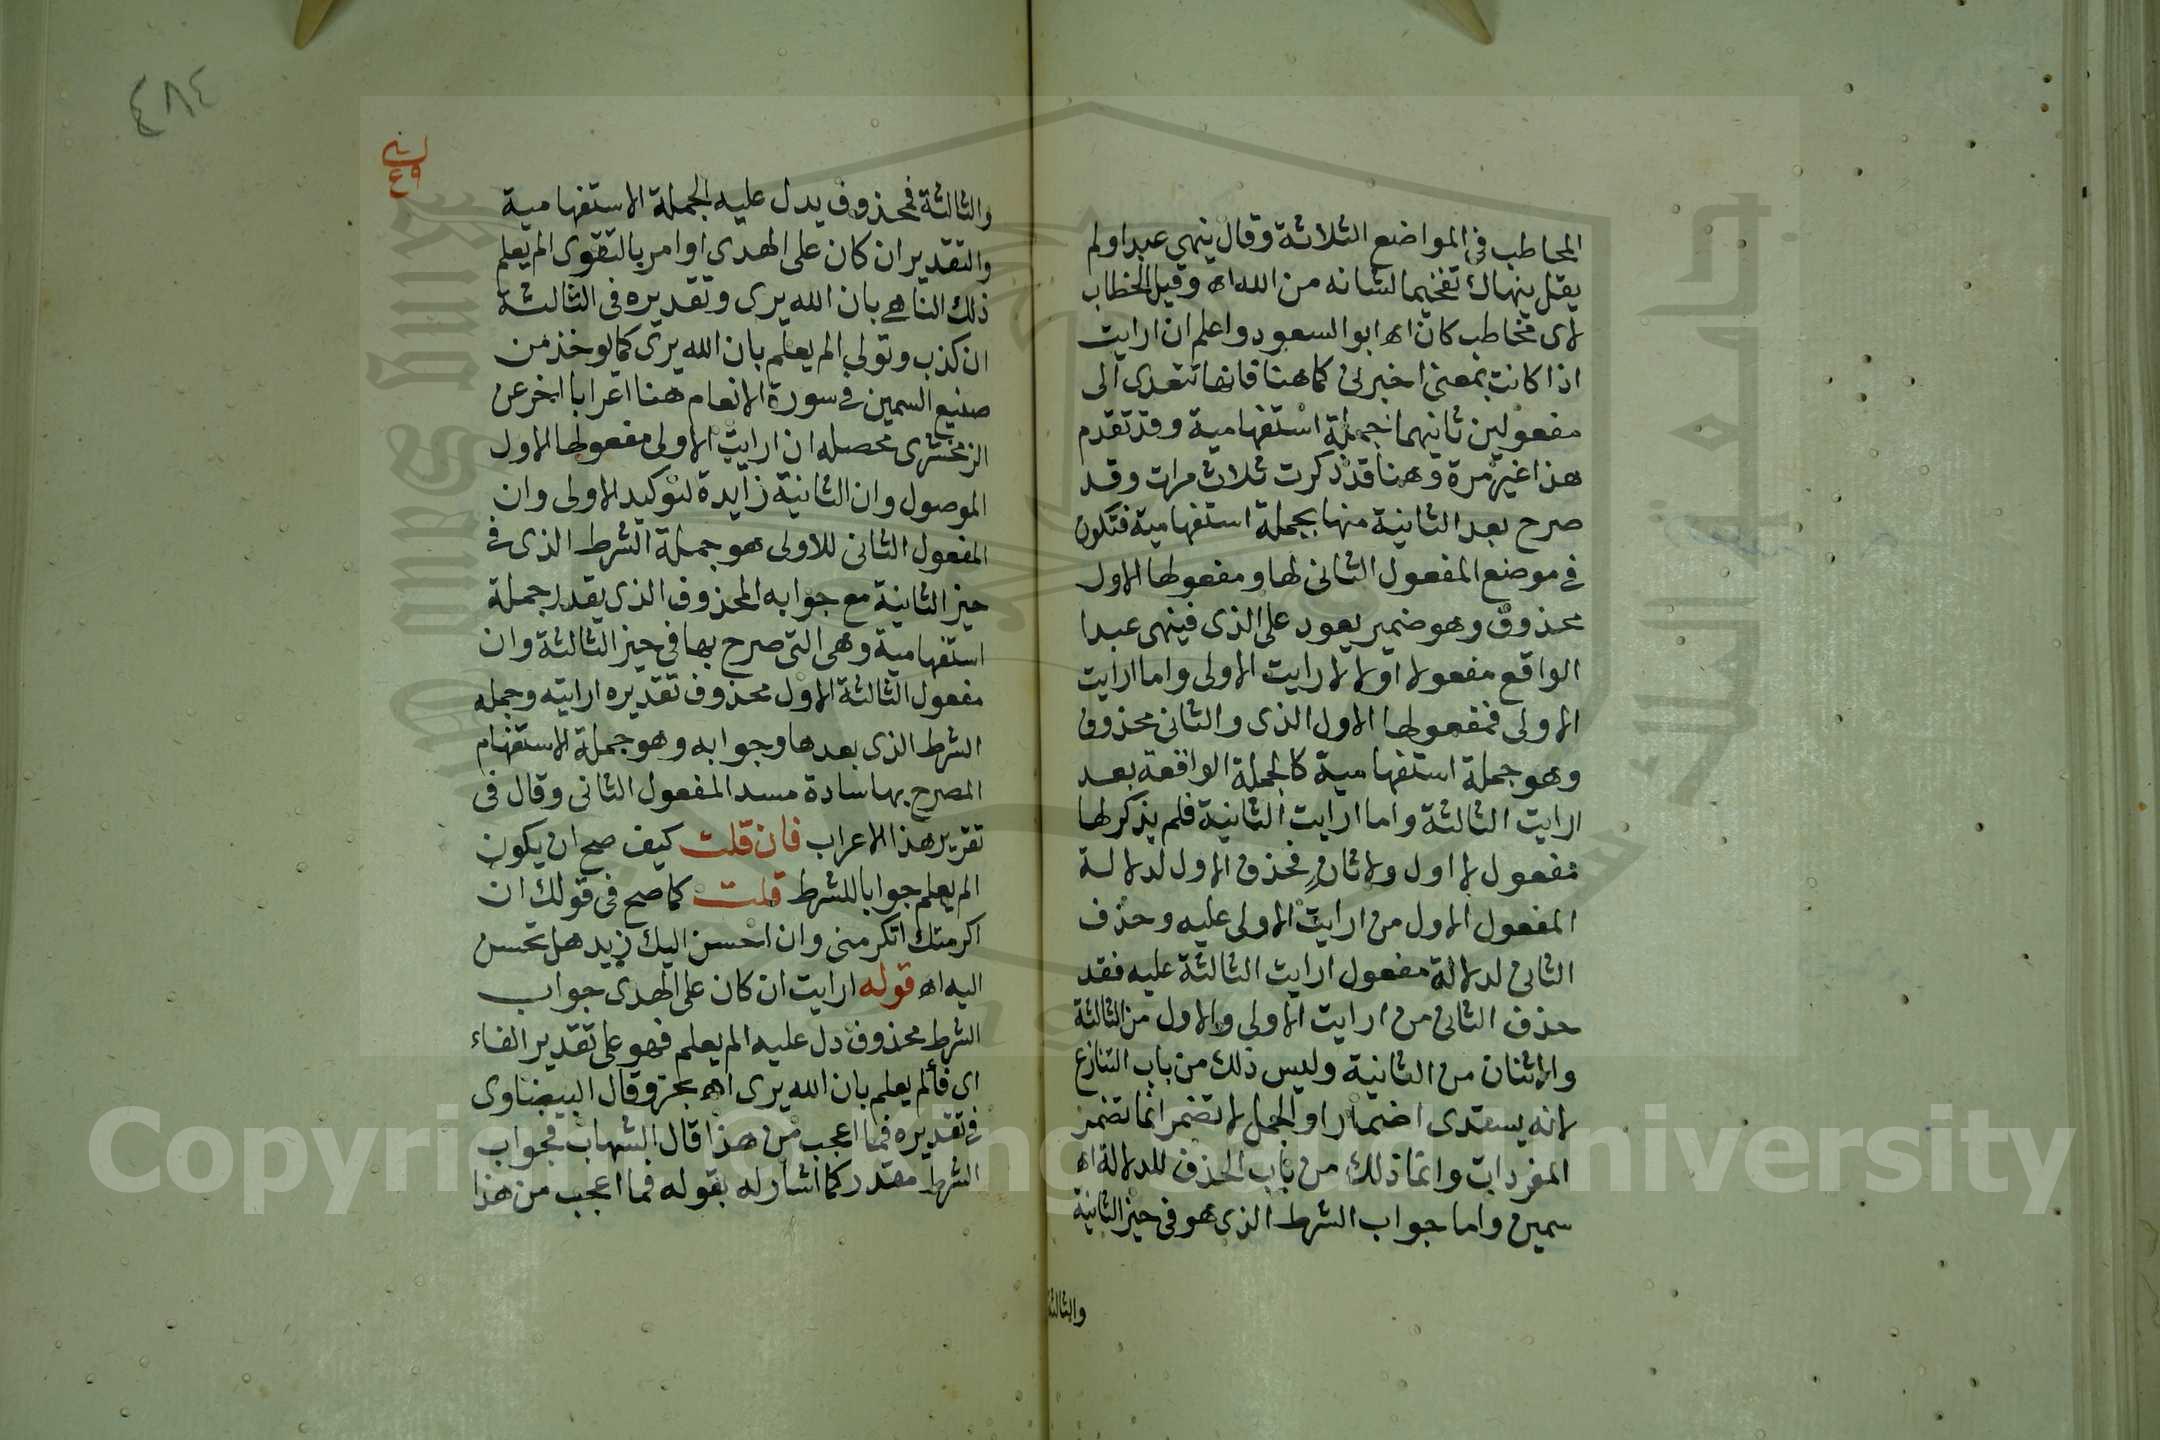 المخاطب في المواضع الثلاثة وقال ينهي عبدا ولم
يقل ينهاك تفخيما لشانه من الله اه وقيل الخطاب
لاى مخاطب كان اه ابو السعود واعلم ان ارايت
اذا كانت بمعنى اخبرنى كما هنا فانها تتعدى الى
مفعولين ثانيهما جملة استفهامية وقد تقدم
هذا غير مرة وهنا قد ذكرت ثلاث مرات وقد
صرح بعد الثانية منها بجملة استفهامية فتكون
فى موضع المفعول الثانى لها ومفعولها الاول
محذوف وهو ضمير يعود على الذى فينهى عبدا
الواقع مفعولا اولا لارايت الاولى واما ارايت
الاولى فمفعولها الاول الذى والثانى محذوف
وهو جملة استفهامية كالجملة الواقعة بعد
ارايت الثالثة واما ارايت الثانية فلم يذكر لها
مفعول لا اول ولا ثان فحذف الاول لدلالة
المفعول الاول من ارايت الاولى عليه وحذف
الثانى لدلالة مفعول ارايت الثالثة عليه فقد
حذف الثانى من ارايت الاولى والاول من الثالثة
والاثنان من الثانية وليس ذلك من باب التنازع
لانه يستدى اضمارا والجمل لا تضمر انما تضمر
المفردات وانما ذلك من باب الحذف للدلالة اه
سمين واما جواب الشرط الذى هو فى حيز الثانية
والثالثة
٤٨٤
والثالثة فمحذوف يدل عليه الجملة الاستفهامية
والتقدير ان كان على الهدى او امر بالتقوى الم يعلم
ذلك الناهى بان الله يرى وتقديره فى الثالثة
ان كذب وتولى الم يعلم بان الله يرى كما يوخذ من
صنيع السمين فى سورة الانعام هنا اعرابا اخر عن
الزمخشرى محصله ان ارايت الاولى مفعولها الاول
الموصول وان الثانية زايدة لتوكيد الاولى وان
المفعول الثانى للاولى هو جملة الشرط الذى فى
حيز الثانية مع جوابه المحذوف الذى يقدر جملة
استفهامية وهى التى صرح بها فى حيز الثالثة وان
مفعول الثالثة الاول محذوف تقديره ارايته وجمله
الشرط الذى بعدها وجوابه وهو جملة الاستفهام
المصرح بها سادة مسد المفعول الثانى وقال فى
تقرير هذا الاعراب فان قلت كيف صح ان يكون
الم يعلم جوابا للشرط قلت كما صح فى قولك ان
اكرمتك اتكرمنى وان احسن اليك زيد هل تحسن
اليه اه قوله ارايت ان كان على الهدى جواب
الشرط محذوف دل عليه الم يعلم فهو على تقدير الفاء
اى فألم يعلم بان الله يرى اه بحر وقال البيضاوى
فى تقديره فما اعجب من هذا قال الشهاب فجواب
الشرط مقدر كما اشار له بقوله فما اعجب من هذا
Copyright © King Saud University
King Saud University
جامعة الملك سعود